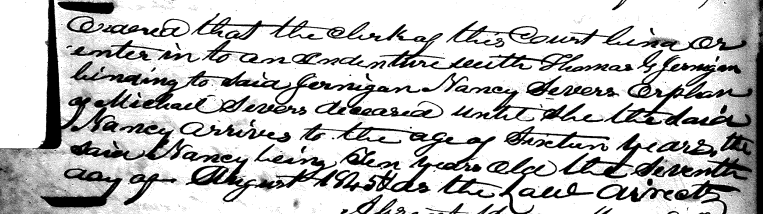 Ordered that the Clerk of this Court bind or
enter in to an Indenture with Thomas G Jernigan
binding to said Jernigan Nancy Severs Orphan
of Michael Severs deceased until she the said
Nancy arrives to the age of Sixteen years, the
said Nancy being Ten years old the Seventh
day of August 1845 as the Law directs